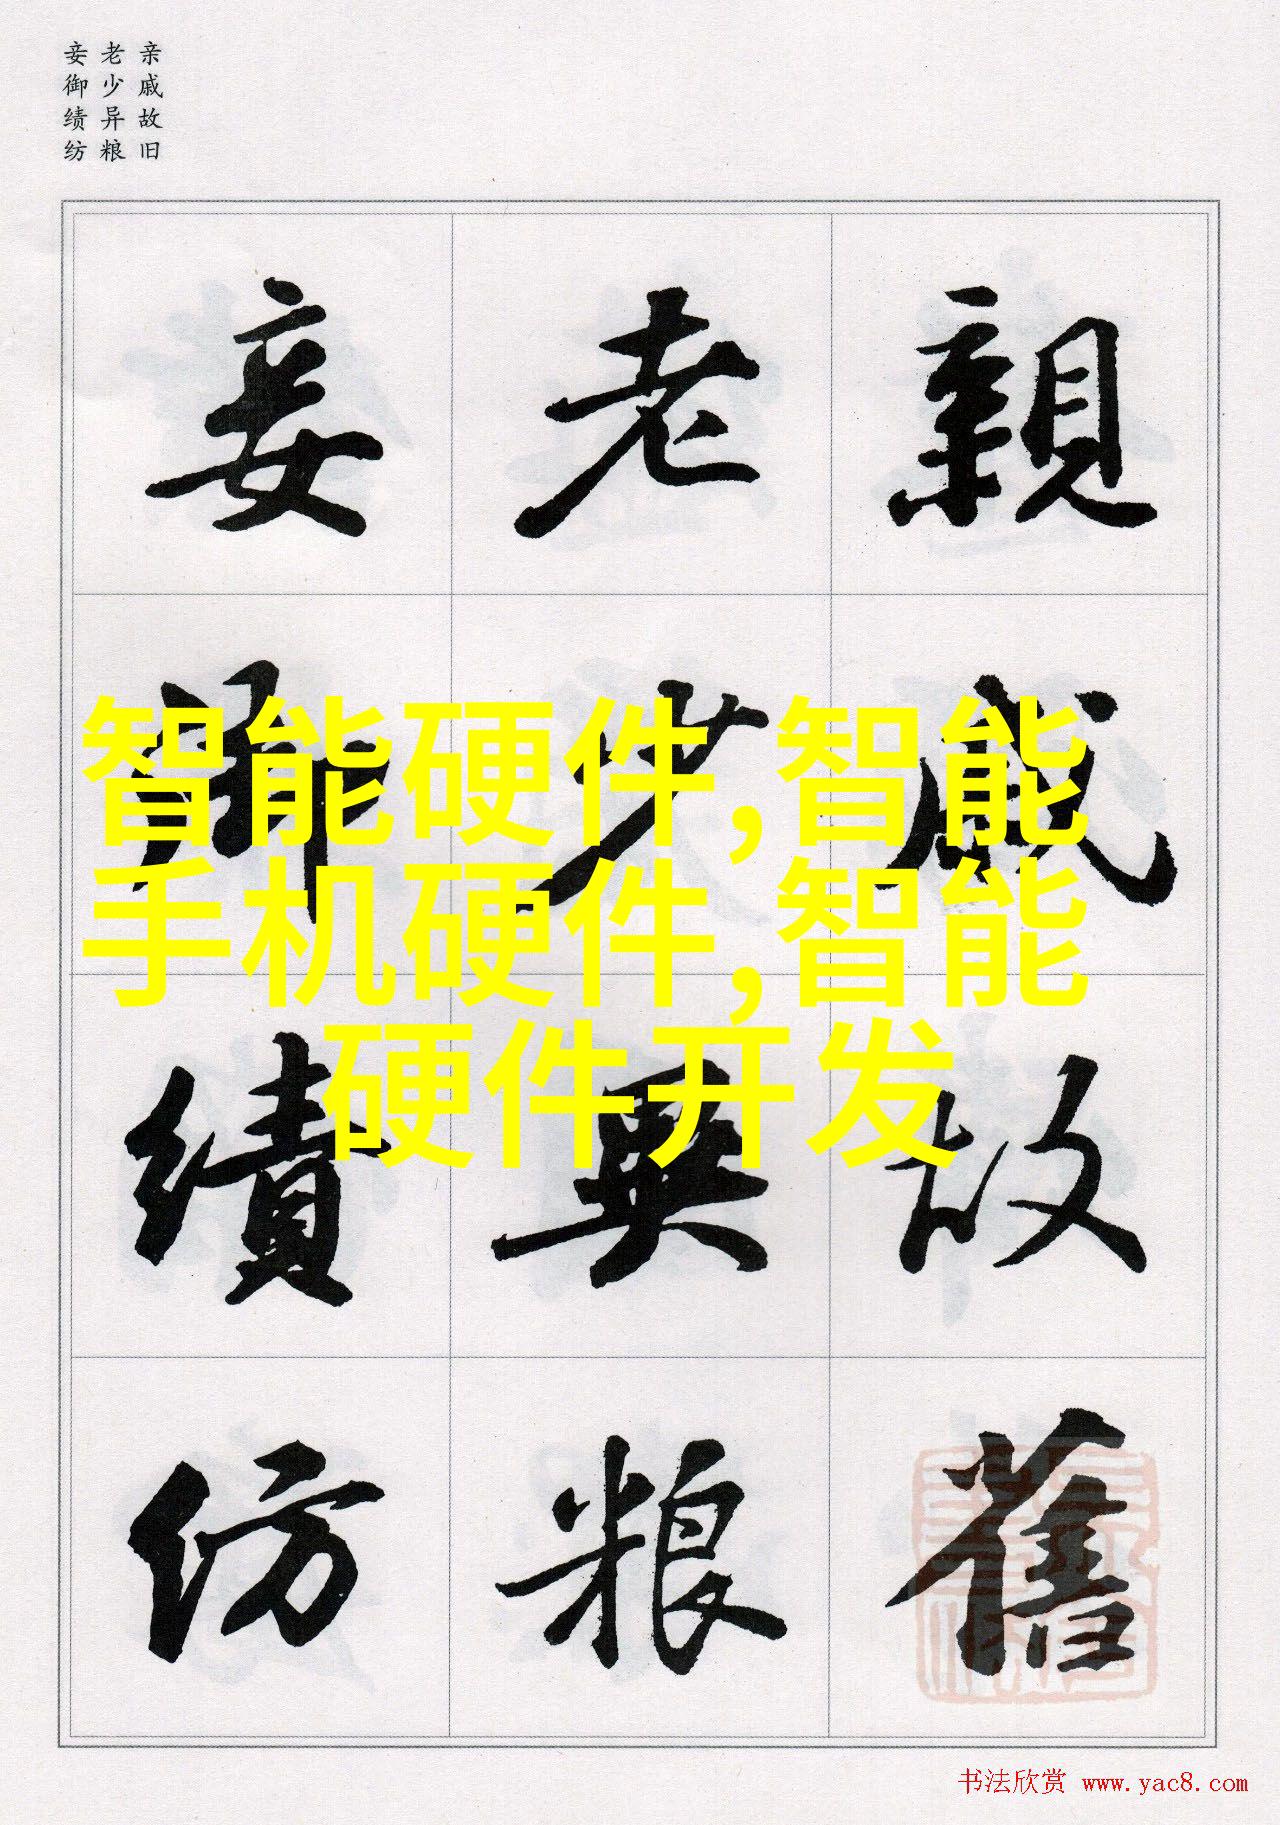 亲戚故旧
老少异粮
妾御绩纺
親戚故舊
老少異粮
妾御績紡
智能硬件,智能
手机硬件,智能
硬件开发
书法欣赏 www.yac8.com